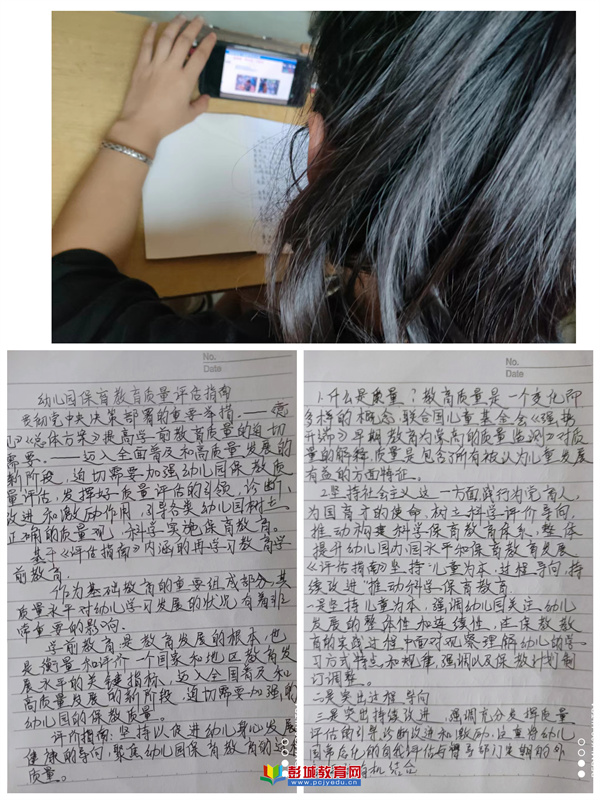 No.
Date
幼儿园保育教育质量评估指南
党中央决策部署的重要举措。——
《总体方案》提高学前教育质量的迫切
需要。——迈入全面普及和高质量发展的
新阶段，迫切需要加强幼儿园保教质
量评估，发挥好质量评估的引领，诊断、
改进和激励作用，引导各类幼儿园树立
正确的质量观，科学实施保育教育。
基于《评估指南》内涵的再学习教育学
前教育，
作为基础教育的重要组成部分，其
质量水平对幼儿学习发展的状况有着非
常重要的影响。
学前教育是教育发展的根本，也
是衡量和评价一个国家和地区教育发
展水平的关键指标，迈入全面普及和
高质量发展的新阶段，迫切需要加强的
幼儿园的保教质量。
评价指南：坚持以促进幼儿身心发展
健康的导向，聚焦幼儿园保育教育的过程
质量。
No.
Date
1.什么是质量？教育质量是一个变化即
多样的概念，联合国儿童基金会《强势
开端》早期教育为掌高的质量监测》对质
量的解释，质量是包含了所有被认为儿童发展
有益的方面特征。
2.坚持社会主义这一方面践行为党育人，
为国育才的使命，树立科学评价导向，
推动构建科学保育教育体系，整体
提升幼儿园办园水平和保育教育发展
《评估指南》坚持"儿童为本，过程导向，持
续改进"推动科学保育教育
一是坚持儿童为本，强调幼儿园关注幼儿
发展的整体性和连续性，在保教教
育的实践过程中面对观察理解幼儿的学
习方式特点和规律，强调以及保教计划制
订调整。
二是突出过程导向
三是突出持续改进，强调充分发挥质量
评估的引导诊断改进和激励，注重将幼儿
园常态化的自我评估与督导部门定期的外
机结合
彭城教育网
www.pcjyedu.cn